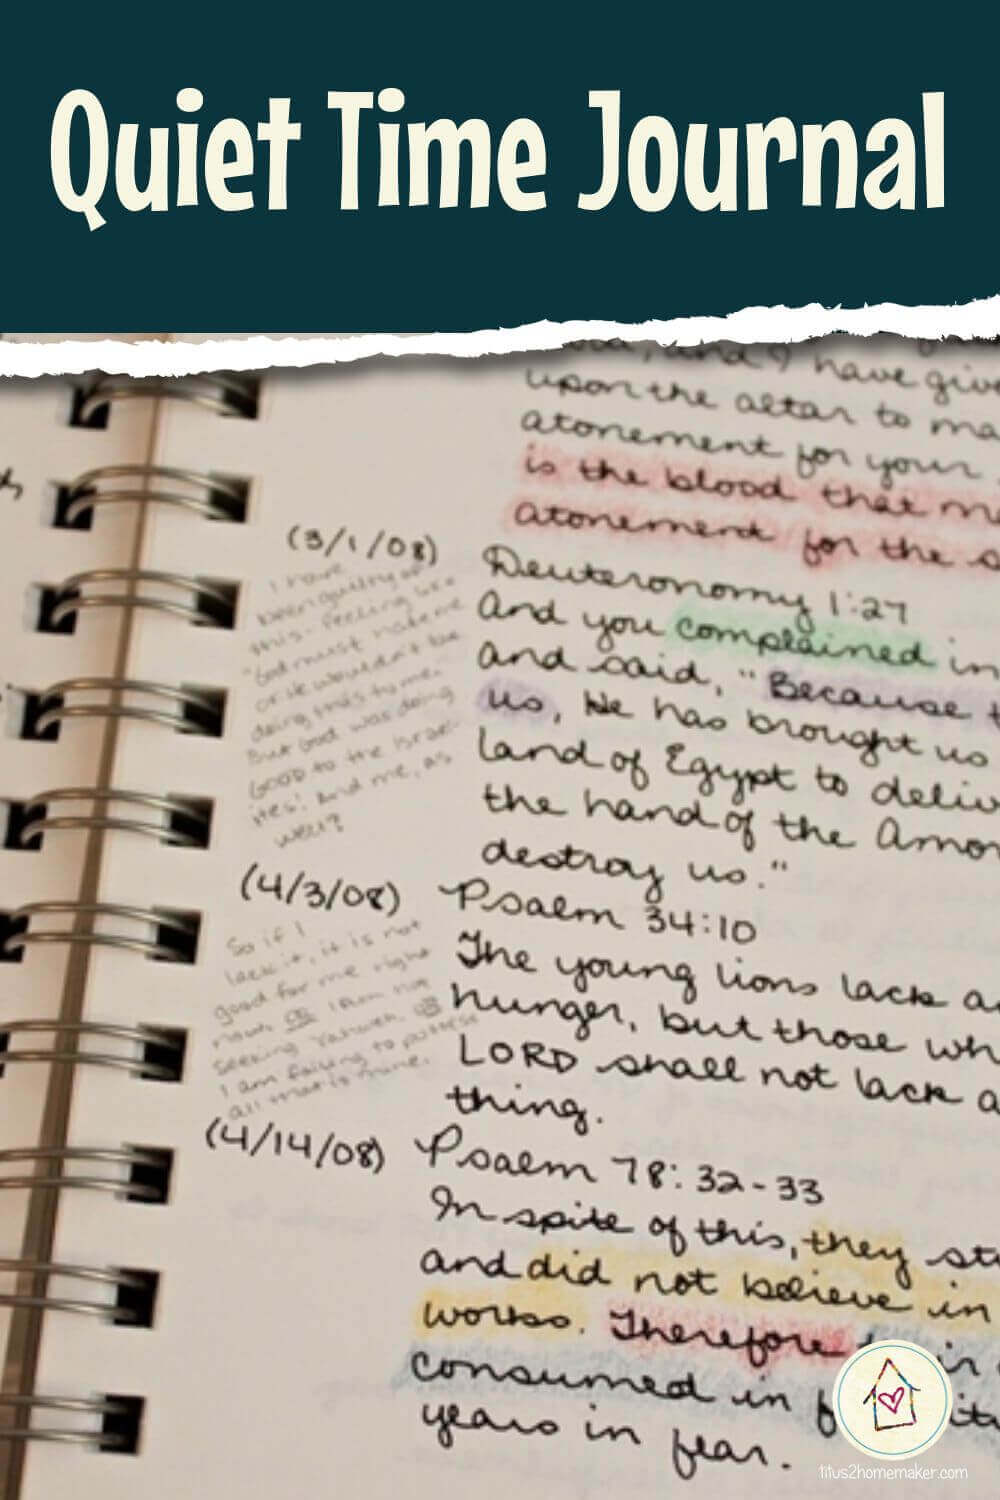 Quiet Time Journal
and I have give
upon the altar to ma
atonement for your
is the blood that m
atonement for the s
(3/1/08)
I have
been guilty of
this - feeling like
"God must hate me
or He wouldn't be
doing this to me."
But God was doing
GOOD to the Israel-
ites! And me, as
well?
Deuteronomy 1:27
And you complained in
and said, "Because t
us, He has brought us
land of Egypt to deliv
the hand of the Amor
destroy us."
(4/3/08)
So if I
lack it, it is not
good for me right
now, OR I am not
seeking Yahweh, OR
I am failing to possess
all that is mine.
Psalm 34:10
The young lions lack a
hunger, but those wh
LORD shall not lack a
thing.
(4/14/08)
Psalm 78:32-33
In spite of this, they sti
and did not believe in
works. Therefore
consumed in
years in fear.
titus2homemaker.com